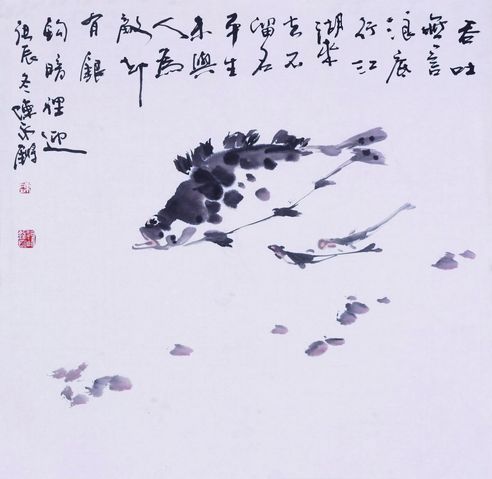 吞吐
無言
底
行江
湖來
去不
留名
平生
未與
人為
敵卻
有銀
鈎暗裡迎
辰冬陳永鏘